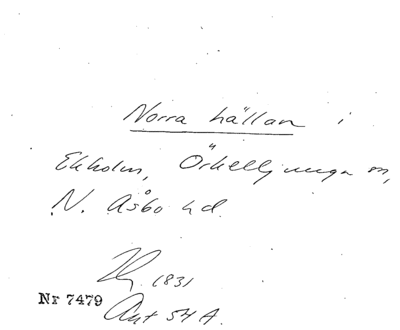 Norra hällan i
Ekholm, Örkelljunga sn,
N. Åsbo hd.
1831
Nr 7479
Akt 54 A.